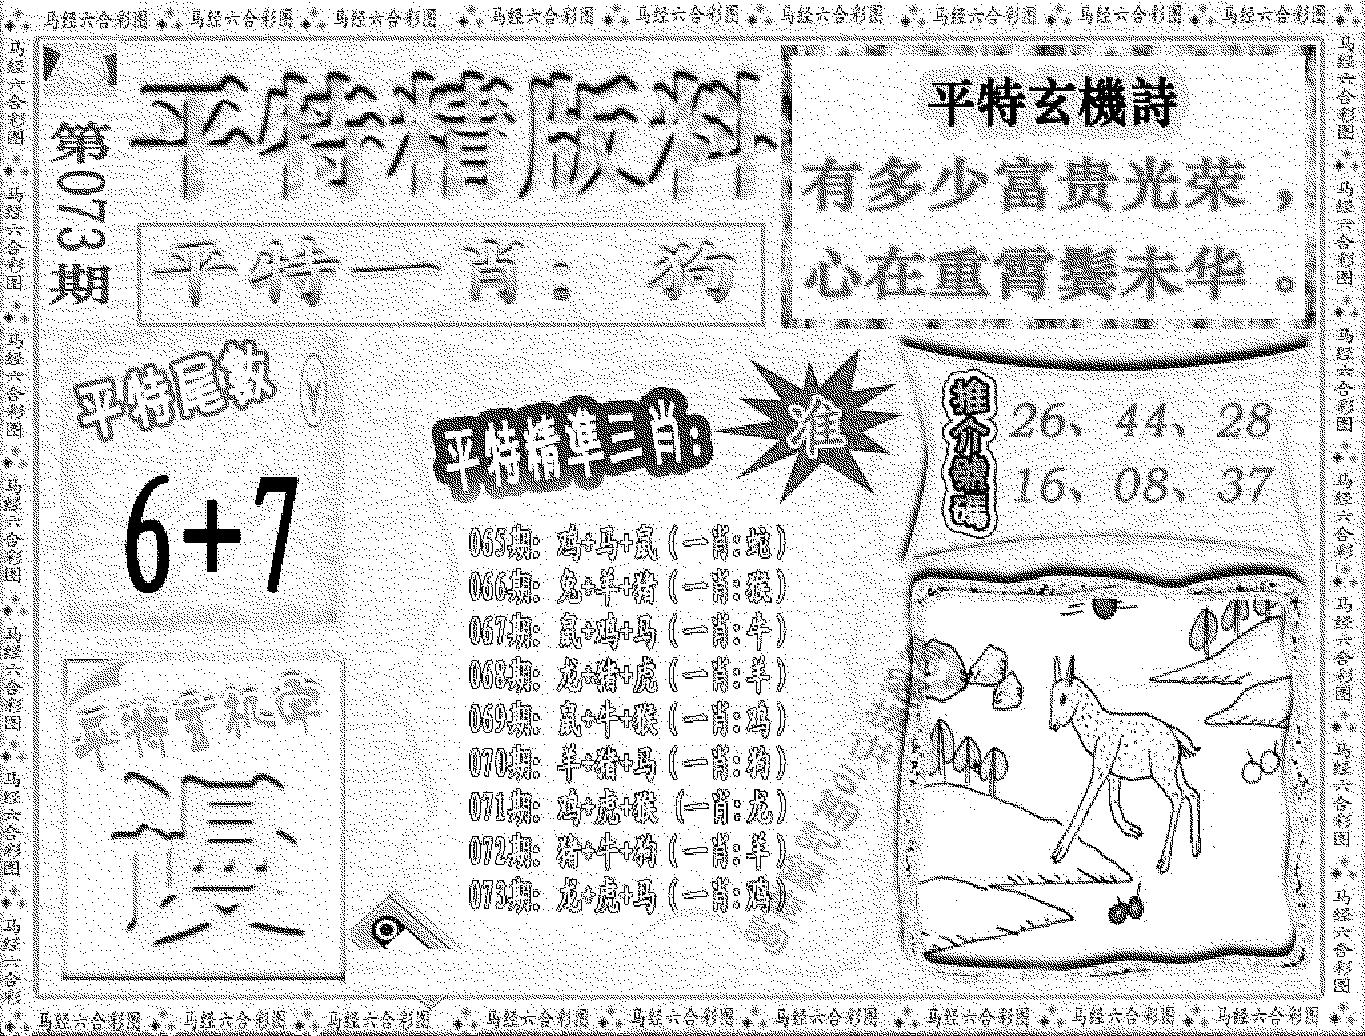 马经六合彩图 马经六合彩图 马经六合彩图 马经六合彩图 马经六合彩图 马经六合彩图 马经六合彩图 马经六合彩图 马经六合彩图
第073期
平特精版料
平特一肖：狗
平特玄機詩
有多少富贵光荣，
心在重霄鬓未华。
平特尾数
6+7
平特精準三肖：
准
065期：鸡+马+鼠（一肖：蛇）
066期：兔+羊+猪（一肖：猴）
067期：鼠+鸡+马（一肖：牛）
068期：龙+猪+虎（一肖：羊）
069期：鼠+牛+猴（一肖：鸡）
070期：羊+猪+马（一肖：狗）
071期：鸡+虎+猴（一肖：龙）
072期：猪+牛+狗（一肖：羊）
073期：龙+虎+马（一肖：鸡）
推介號碼
26、44、28
16、08、37
平特玄机字
马经六合彩图 马经六合彩图 马经六合彩图 马经六合彩图 马经六合彩图 马经六合彩图 马经六合彩图 马经六合彩图 马经六合彩图